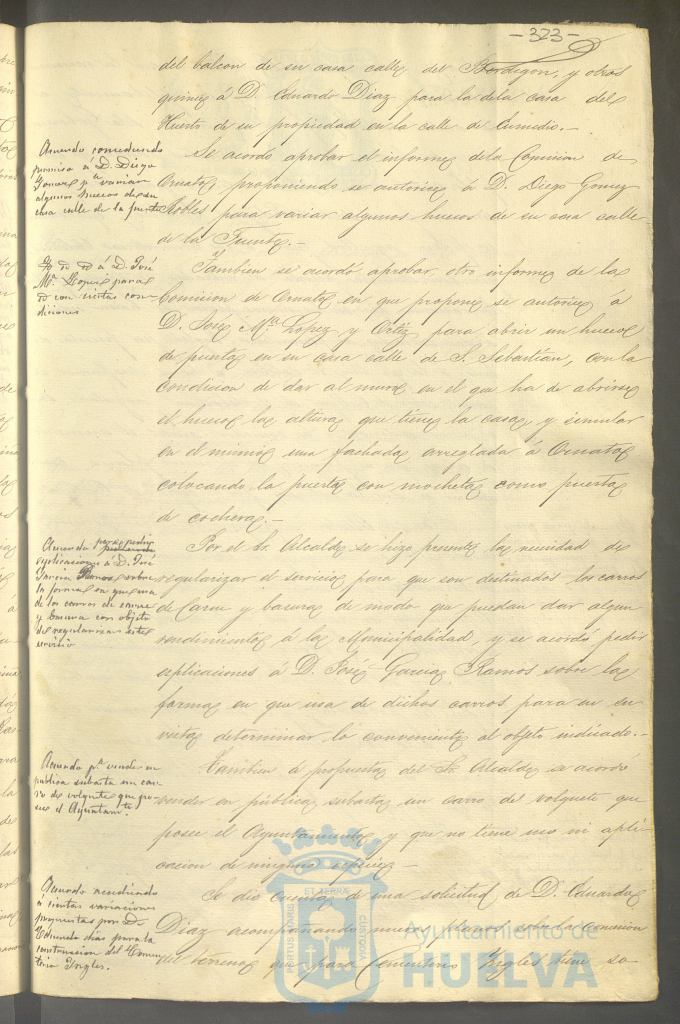 -323-
del balcon de su casa calle del Bordigon, y otros
quince á D. Eduardo Diaz para la dela casa del
Huerto de su propiedad en la calle de Enmedio.-
Acuerdo concediendo
permiso á D. Diego
Gomez pª variar
algunos huecos de su
casa calle de la fuente
Se acordó aprobar el informe dela Comision de
Ornato proponiendo se autorice á D. Diego Gomez
Robles para variar algunos huecos de su casa calle
de la Fuente.-
Yd id id á D. José
Mª Lopez para
id con ciertas con-
diciones
Tambien se acordó aprobar otro informe de la
Comision de Ornato en que propone se autorice á
D. José Mª Lopez y Ortiz para abrir un hueco
de puerta en su casa calle de S. Sebastian, con la
condicion de dar al muro en el que ha de abrirse
el hueco la altura que tiene la casa y simular
en el mismo una fachada arreglada á Ornato
colocando la puerta con mocheta como puerta
de cochera.-
Acuerdo para pedir
esplicaciones á D. José
Garcia Ramos sobre
la forma en que usa
de los carros de carne
y basura con objeto
de regularizar este
servicio
Por el Sr. Alcalde se hizo presente la necesidad de
regularizar el servicio para que son destinados los carros
de Carne y basura de modo que puedan dar algun
rendimiento á la Municipalidad y se acordó pedir
esplicaciones á D. José Garcia Ramos sobre la
forma en que usa de dichos carros para en su
vista determinar lo conveniente al objeto indicado.-
Acuerdo pª vender en
publica subasta un car-
ro de volquete que po-
see el Ayuntamto.
Tambien á propuesta del Sr. Alcalde se acordó
vender en pública subasta un carro de volquete que
posee el Ayuntamiento y que no tiene uso ni apli-
cacion de ninguna especie-
Acuerdo accediendo
á ciertas variaciones
propuestas por D.
Eduardo Diaz para la
construccion del Cemen-
terio Ingles.
Se dió cuenta de una solicitud de D. Eduardo
Diaz acompañando nuevo plano sobre la cesion
del terreno que para Cementerio Ingles tiene so-
PORTUS MARIS
ET TERRÆ
CUSTODIA
Ayuntamiento de
HUELVA